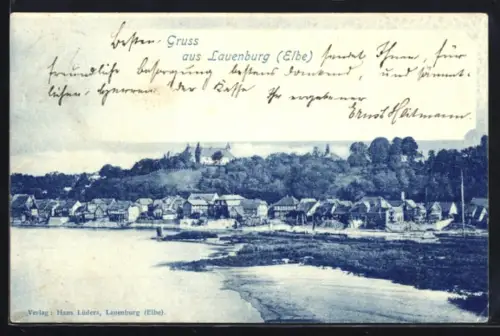 Besten Gruss
aus Lauenburg (Elbe) sendet Ihnen, für
freundliche Besorgung bestens dankend, und sämmt-
lichen Herren der Kasse Ihr ergebener
Ernst
Verlag: Hans Lüders, Lauenburg (Elbe).